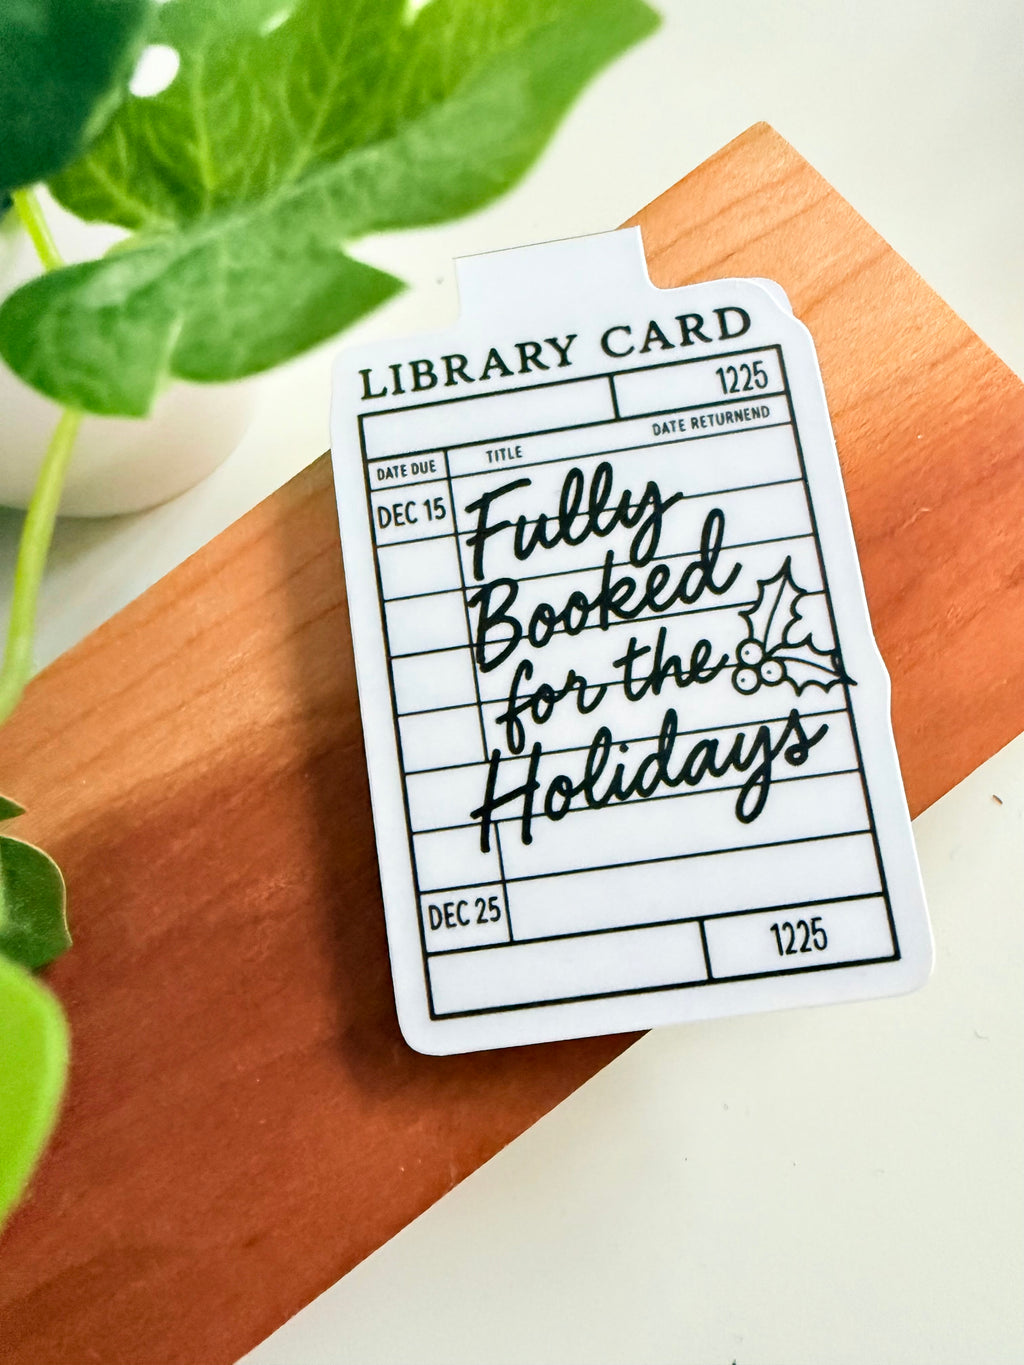 LIBRARY CARD
1225
DATE DUE TITLE DATE RETURNEND
DEC 15
Fully
Booked
for the
Holidays
DEC 25
1225